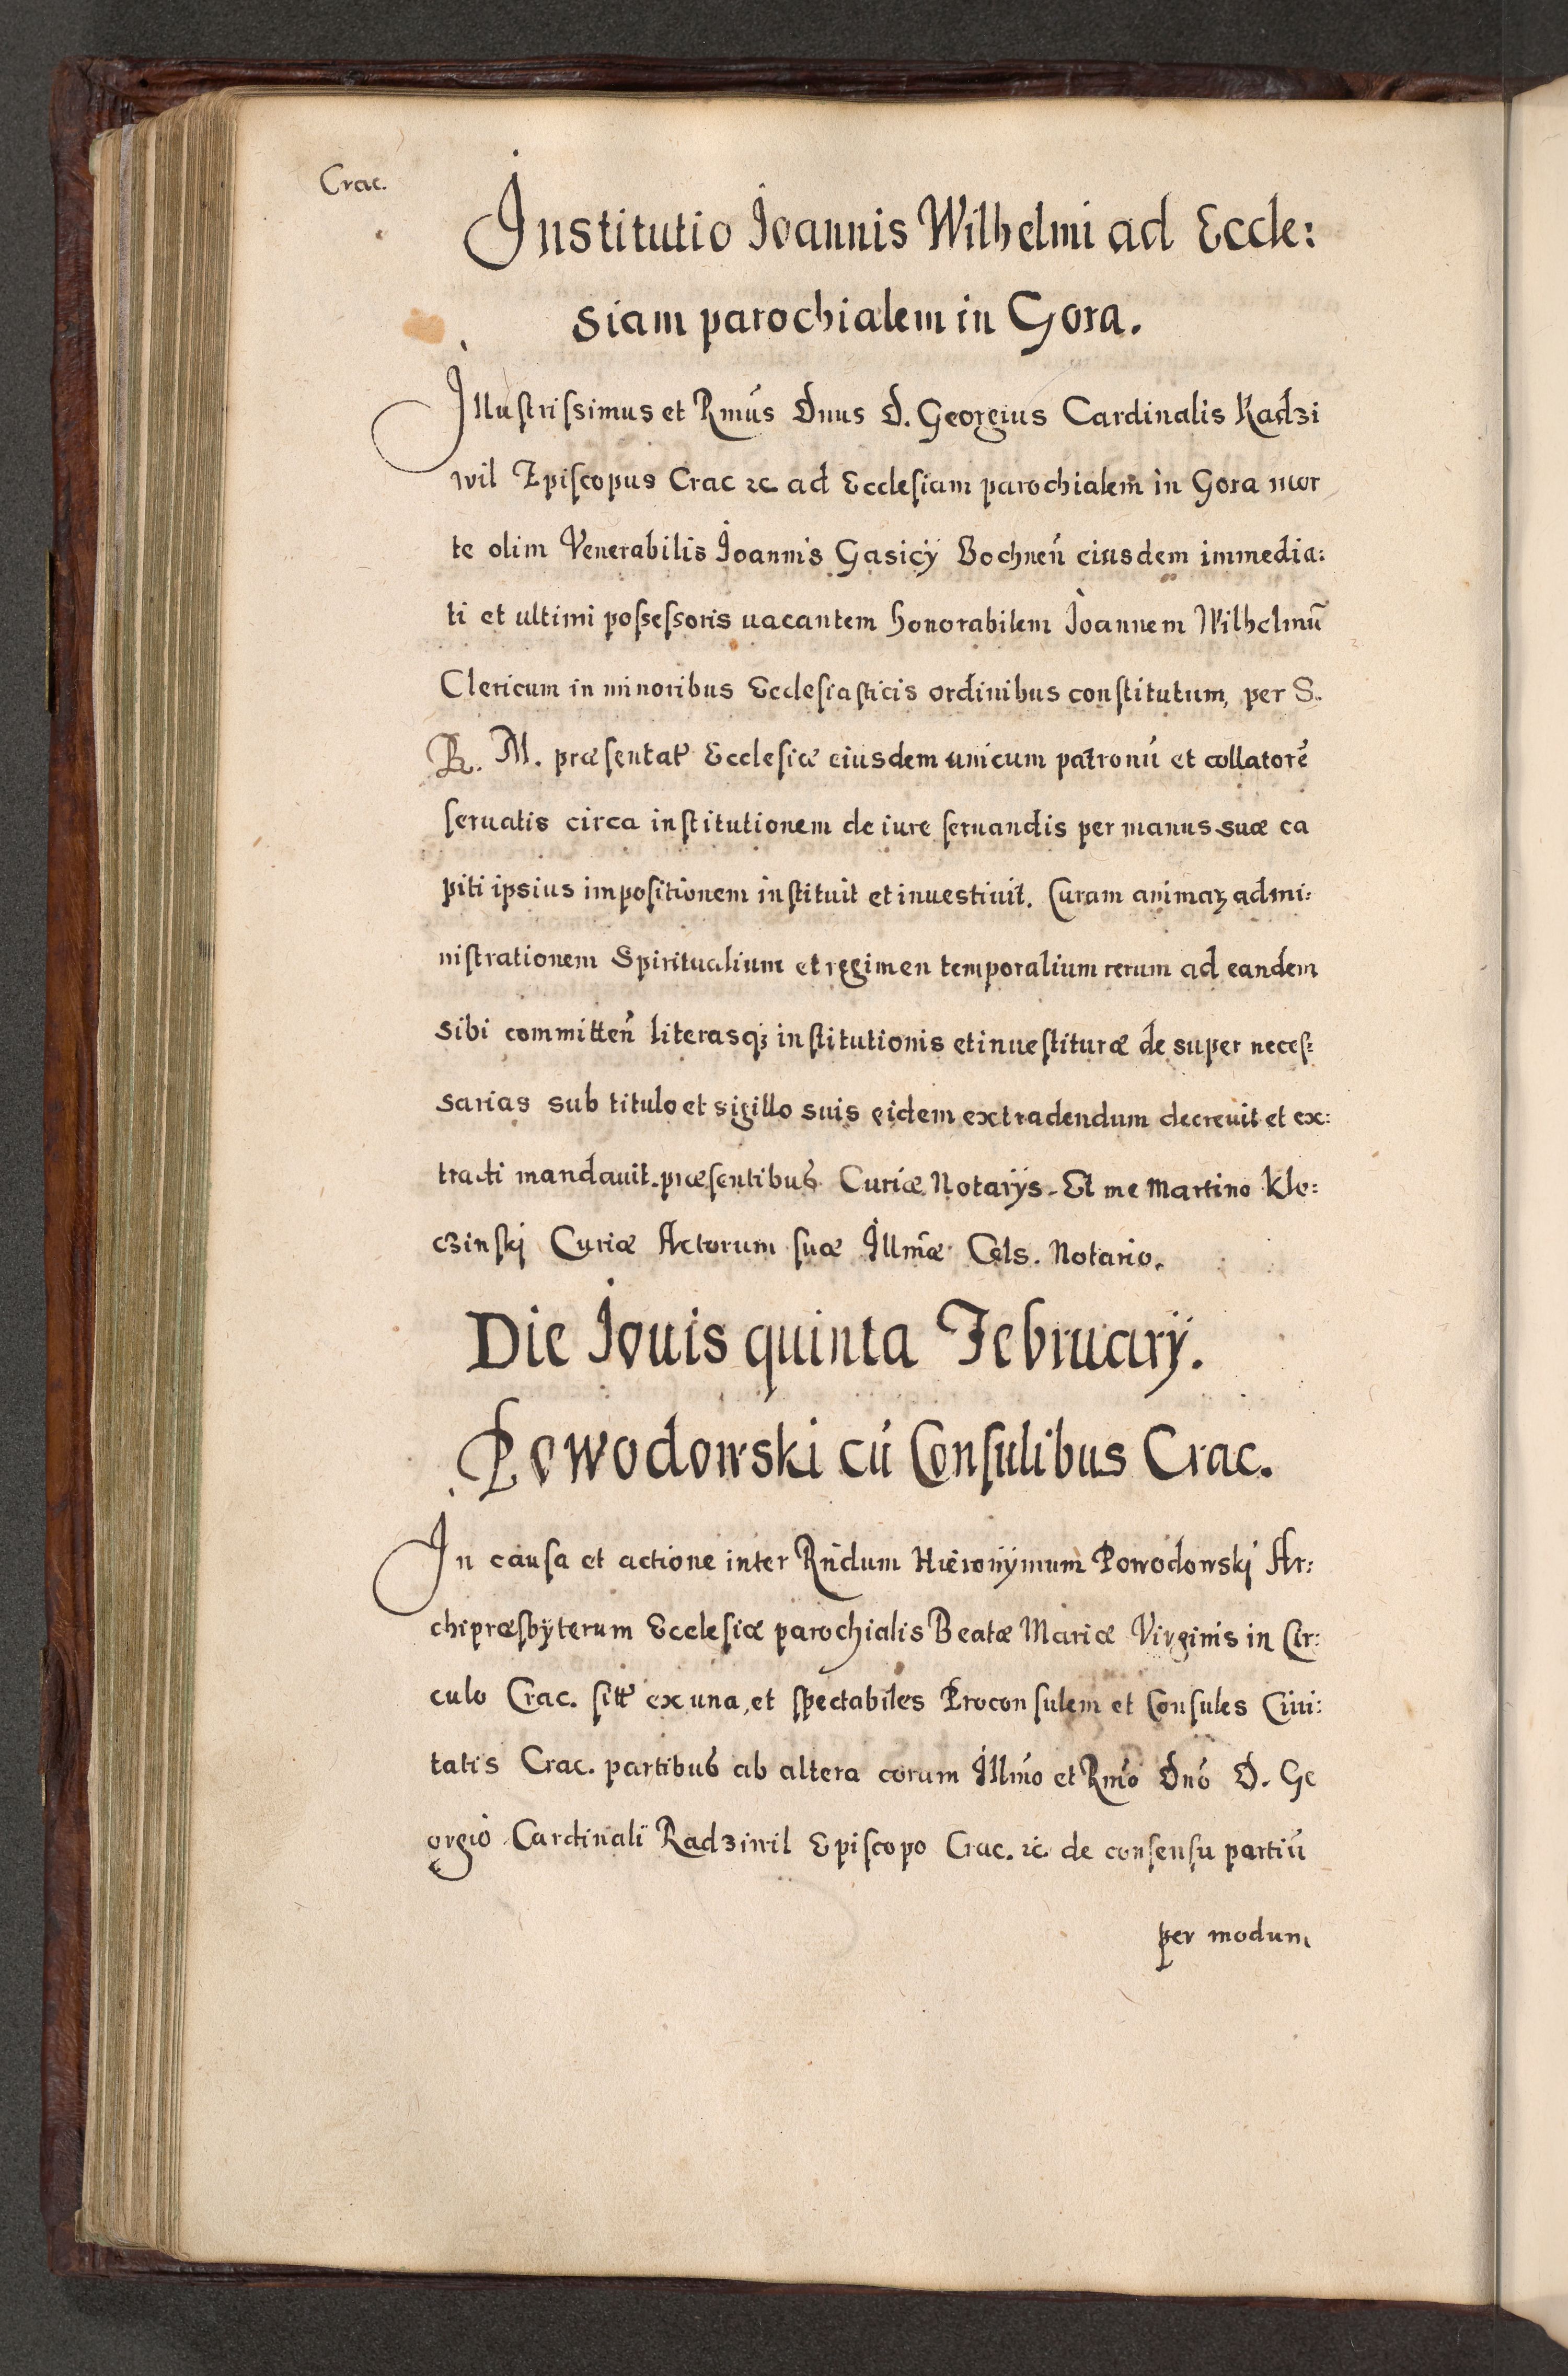 Crac.
Institutio Joannis Wilhelmi ad Eccle:
siam parochialem in Gora.
Illustrissimus et Rmūs Dnus D. Georgius Cardinalis Radzi
wil Episcopus Crac ꝛc ad Ecclesiam parochialem in Gora mor
te olim Venerabilis Joannis Gasicÿ Bochneñ eiusdem immedia:
ti et ultimi possessoris uacantem honorabilem Joannem Wilhelmū
Clericum in minoribus Ecclesiasticis ordinibus constitutum, per S.
R. M. præsentat Ecclesiæ eiusdem unicum patronū et collatorē
seruatis circa institutionem de iure seruandis per manus suæ ca
piti ipsius impositionem instituit et inuestiuit. Curam animaꝝ admi:
nistrationem Spiritualium et regimen temporalium rerum ad eandem
sibi committeñ literasqꝫ institutionis et inuestituræ de super neces:
sarias sub titulo et sigillo suis eidem extradendum decreuit et ex:
tradi mandauit. præsentibus Curiæ Notarÿs. Et me Martino Klo:
czinskj Curiæ Actorum suæ Illmæ Cels. Notario.
Die Jouis quinta Februarÿ.
Powodowski cū Consulibus Crac.
In causa et actione inter Rndum Hieronÿmum Powodowskj Ar:
chipræsbÿterum Ecclesiæ parochialis Beatæ Mariæ Virginis in Cir:
culo Crac. sitt ex una, et spectabiles Proconsulem et Consules Ciui:
tatis Crac. partibus ab altera coram Illmo et Rmo Dno D. Ge
orgio Cardinali Radziwil Episcopo Crac. ꝛc. de consensu partiū
per modum